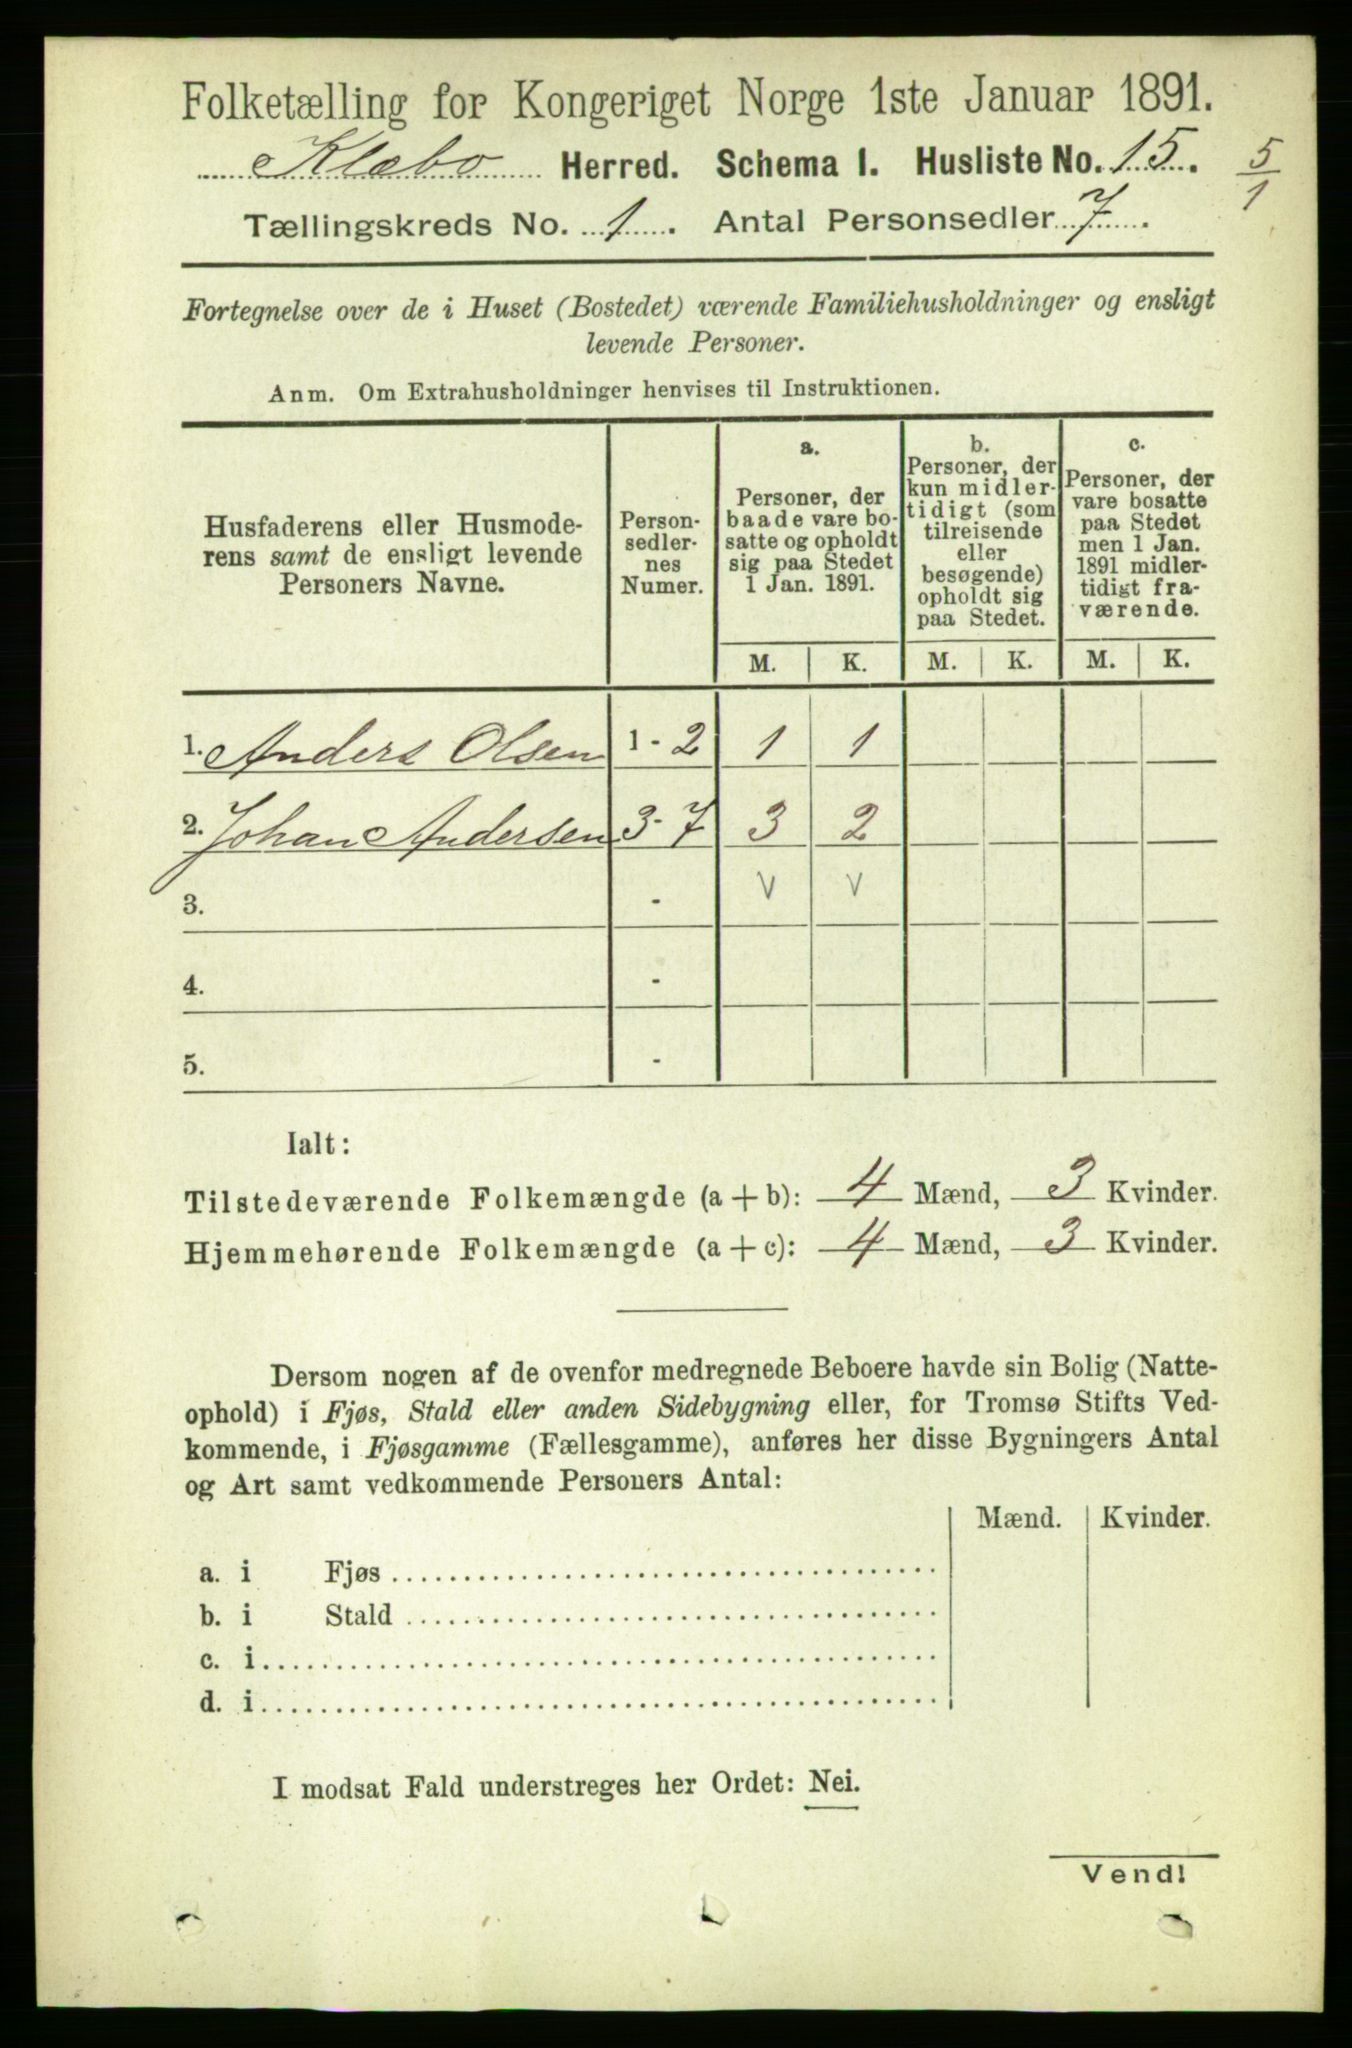 Folketælling for Kongeriget Norge 1ste Januar 1891.
Klæbo Herred. Schema 1. Husliste No. 15.
5/1
Tællingskreds No. 1. Antal Personsedler 7.
Fortegnelse over de i Huset (Bostedet) værende Familiehusholdninger og ensligt
levende Personer.
Anm. Om Extrahusholdninger henvises til Instruktionen.
Husfaderens eller Husmode-
rens samt de ensligt levende
Personers Navne.
Person-
sedler-
nes
Numer.
a.
Personer, der
baade vare bo-
satte og opholdt
sig paa Stedet
1 Jan. 1891.
b.
Personer, der
kun midler-
tidigt (som
tilreisende
eller
besøgende)
opholdt sig
paa Stedet.
c.
Personer, der
vare bosatte
paa Stedet
men 1 Jan.
1891 midler-
tidigt fra-
værende.
M. K. M. K. M. K.
1. Anders Olsen 1 - 2 1 1
2. Johan Andersen 3 - 7 3 2
3. - V V
4. -
5. -
Ialt:
Tilstedeværende Folkemængde (a + b): 4 Mænd, 3 Kvinder.
Hjemmehørende Folkemængde (a + c): 4 Mænd, 3 Kvinder.
Dersom nogen af de ovenfor medregnede Beboere havde sin Bolig (Natte-
ophold) i Fjøs, Stald eller anden Sidebygning eller, for Tromsø Stifts Ved-
kommende, i Fjøsgamme (Fællesgamme), anføres her disse Bygningers Antal
og Art samt vedkommende Personers Antal:
Mænd. Kvinder.
a. i Fjøs
b. i Stald
c. i
d. i
I modsat Fald understreges her Ordet: Nei.
Vend!